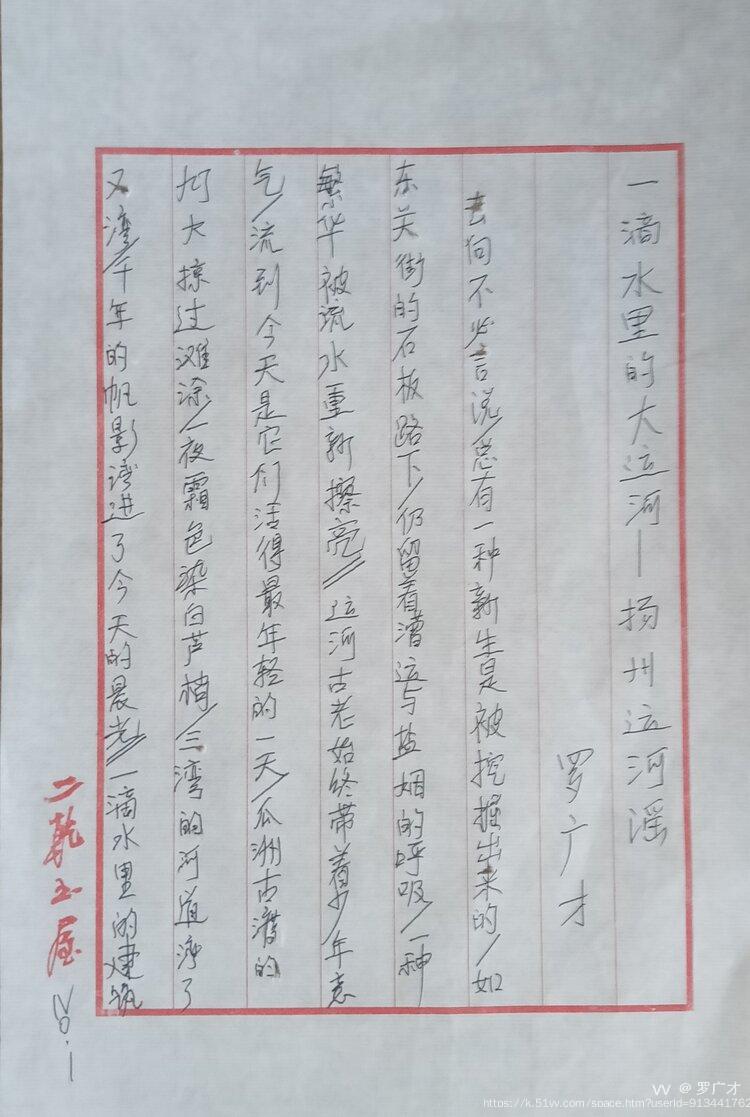 一滴水里的大运河—扬州运河谣
罗广才
去向不必言说/总有一种新生是被挖掘出来的/如
东关街的石板路下/仍留着漕运与盐烟的呼吸/一种
繁华被流水重新擦亮//运河古老始终带着少年意
气/流到今天是它们活得最年轻的一天/瓜洲古渡的
大掠过滩涂/一夜霜色染白芦梢/三湾的河道湾了
又湾/千年的帆影湾进了今天的晨光//一滴水里的建筑
二乾土屋
NO.1
@罗广才
https://k.51vv.com/space.htm?userid=913441762